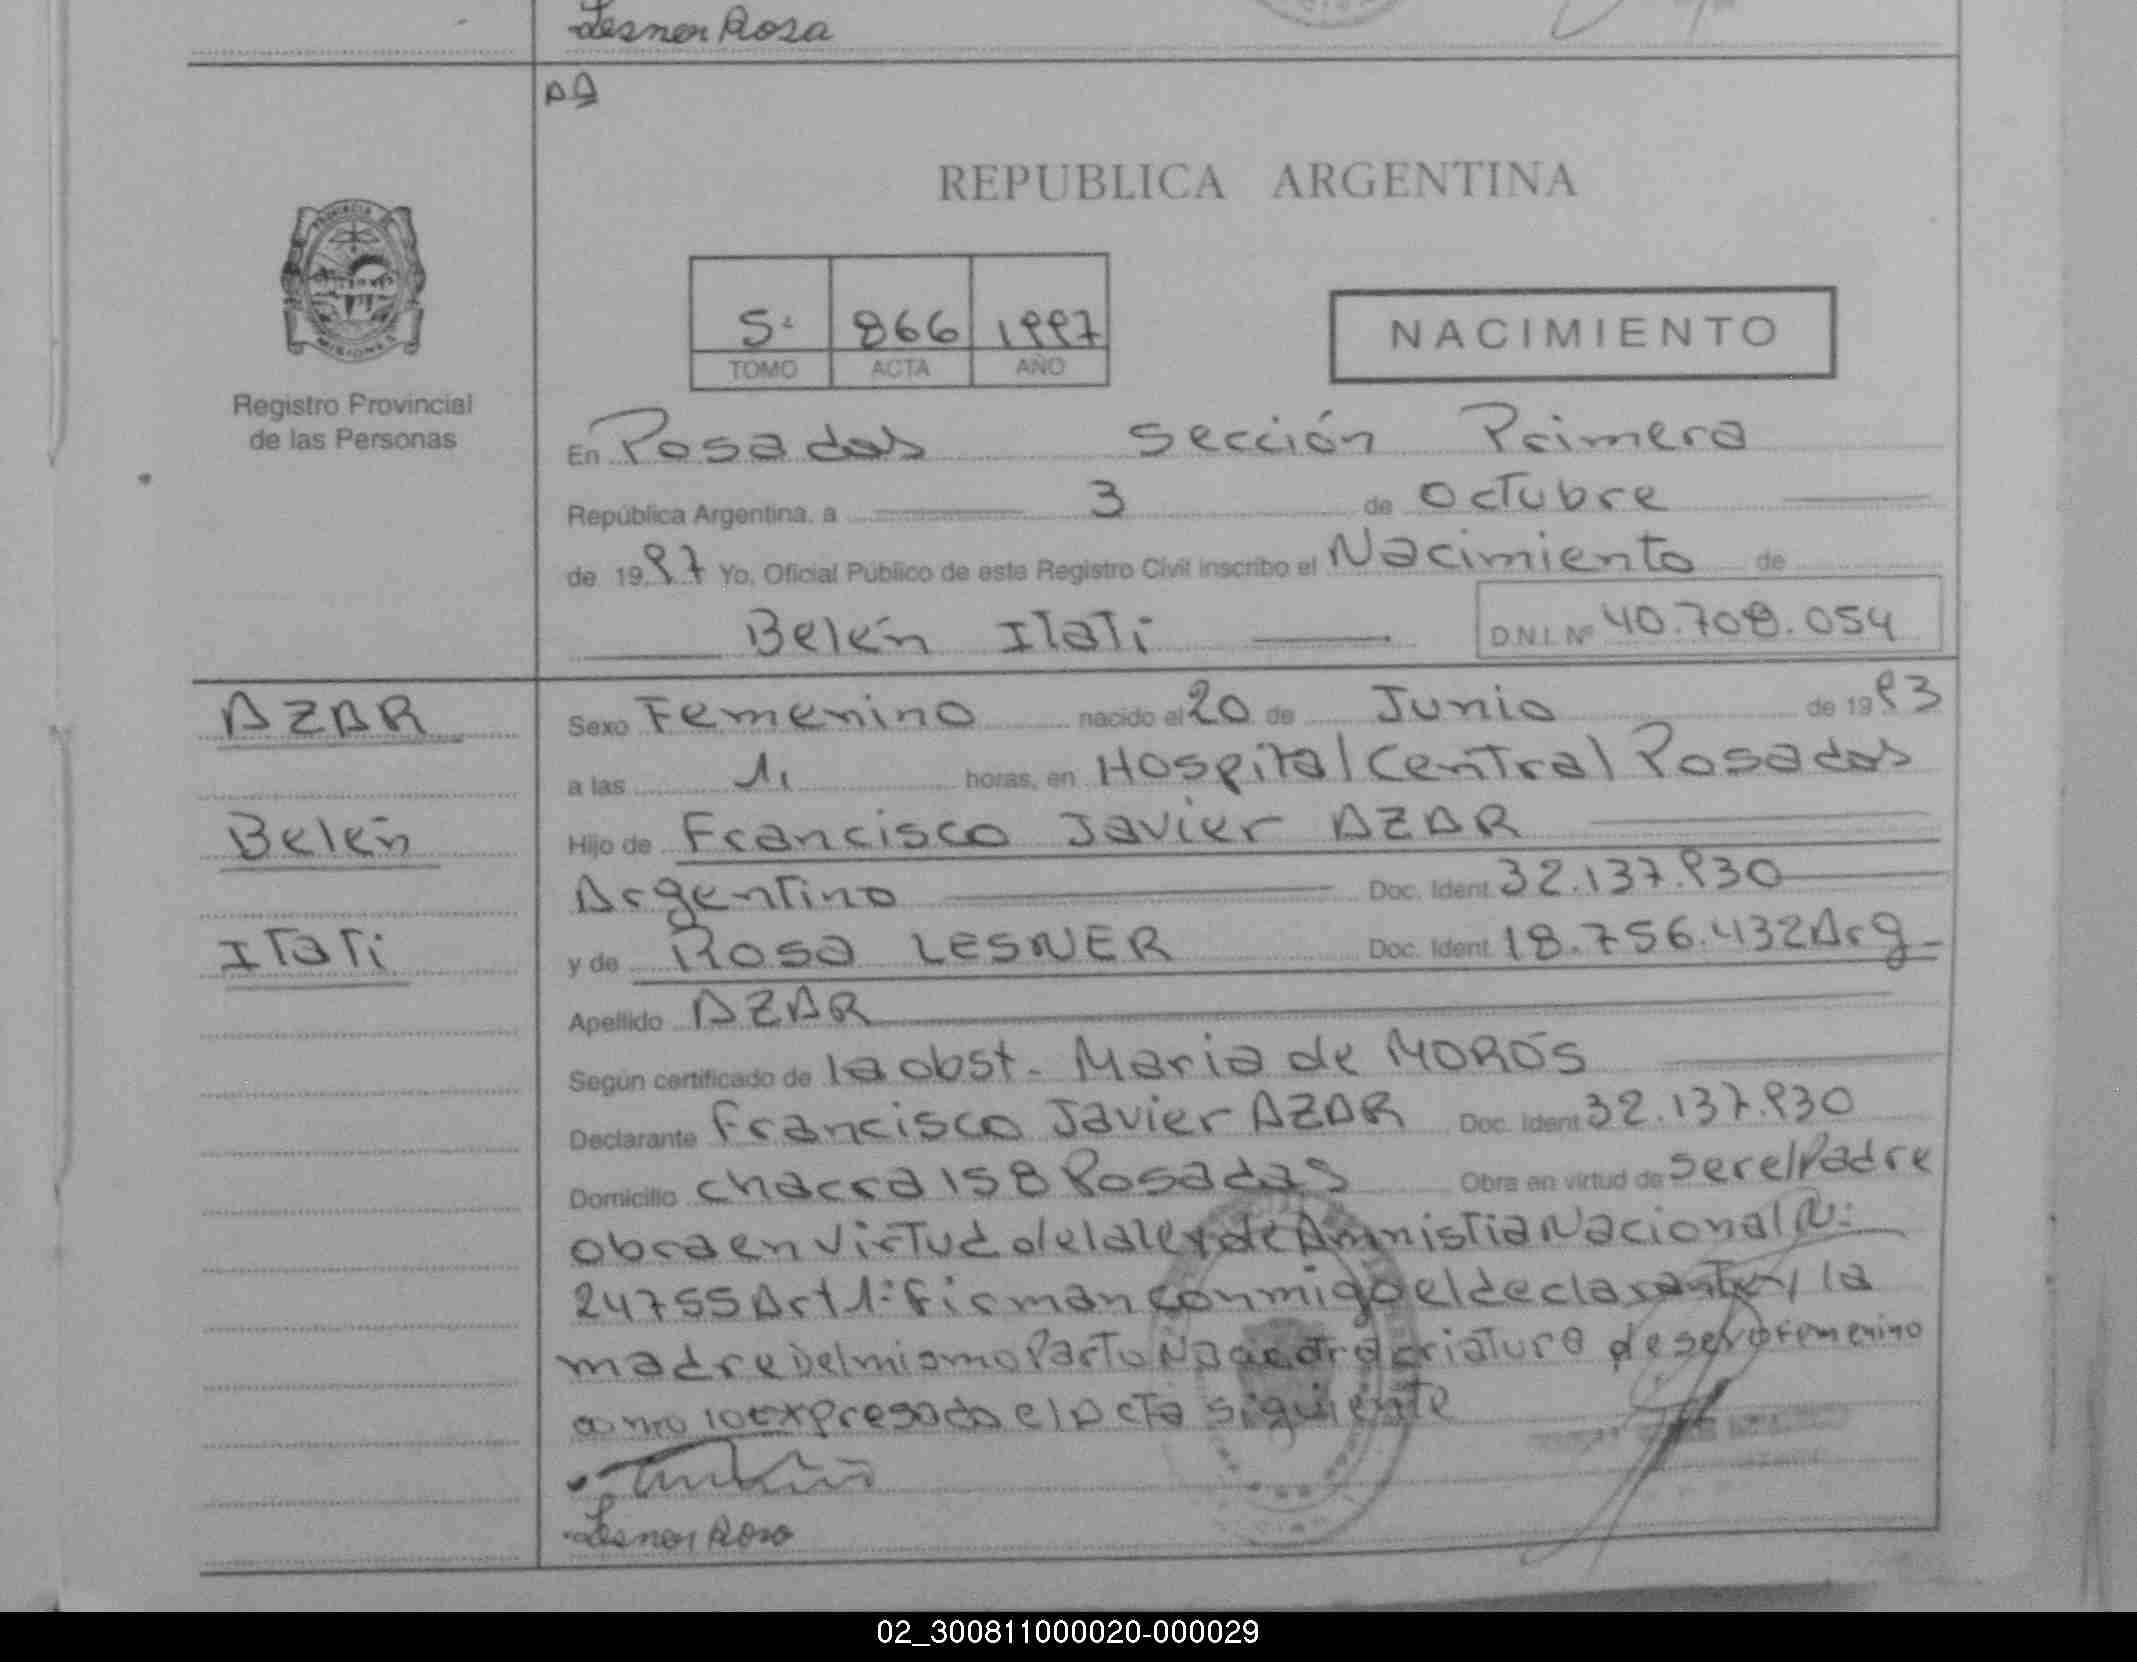 Lesner Rosa
REPUBLICA ARGENTINA
PROVINCIA
MISIONES
Registro Provincial
de las Personas
5º 866 1997
TOMO ACTA AÑO
NACIMIENTO
En Posadas Sección Primera
República Argentina, a 3 de Octubre
de 1997 Yo, Oficial Público de este Registro Civil inscribo el Nacimiento de
Belén Itati D.N.I. Nº 40.708.054
AZAR
Belén
Itati
Sexo Femenino nacido el 20 de Junio de 1993
a las 1, horas, en Hospital Central Posadas
Hijo de Francisco Javier AZAR
Argentino Doc. Ident. 32.137.930
y de Rosa LESNER Doc. Ident. 18.756.432 Arg
Apellido AZAR
Según certificado de la obst. Maria de MOROS
Declarante Francisco Javier AZAR Doc. Ident 32.137.930
Domicilio chacra 158 Posadas Obra en virtud de ser el Padre
obra en virtud de la ley de Amnistia Nacional Nº
24755 Art 1º firman conmigo el declarante y la
madre Del mismo Parto Nace otra criatura de sexo femenino
como lo expresado el Acta siguiente
Lesner Rosa
02_300811000020-000029